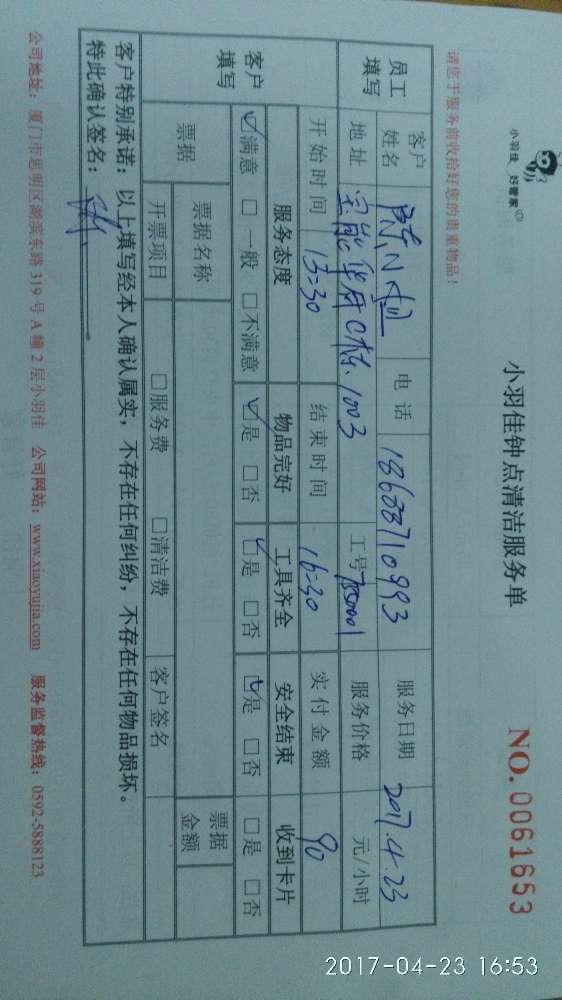 小羽佳 好管家
小羽佳钟点清洁服务单
NO. 0061653
请您于服务前收拾好您的贵重物品！
员工填写
客户姓名 电话 服务日期 2017.4.23
地址 宝能华府C栋1003 工号 服务价格 元/小时
开始时间 13:30 结束时间 16:30 实付金额 90
客户填写
服务态度 物品完好 工具齐全 安全结束 收到卡片
☑满意 □一般 □不满意 ☑是 □否 ☑是 □否 ☑是 □否 □是 □否
票据 票据名称 票据金额
开票项目 □服务费 □清洁费 客户签名
客户特别承诺：以上填写经本人确认属实，不存在任何纠纷，不存在任何物品损坏。
特此确认签名：
公司地址：厦门市思明区湖滨东路 319 号 A 幢 2 层小羽佳 公司网站：www.xiaoyujia.com 服务监督热线：0592-5888123
2017-04-23 16:53